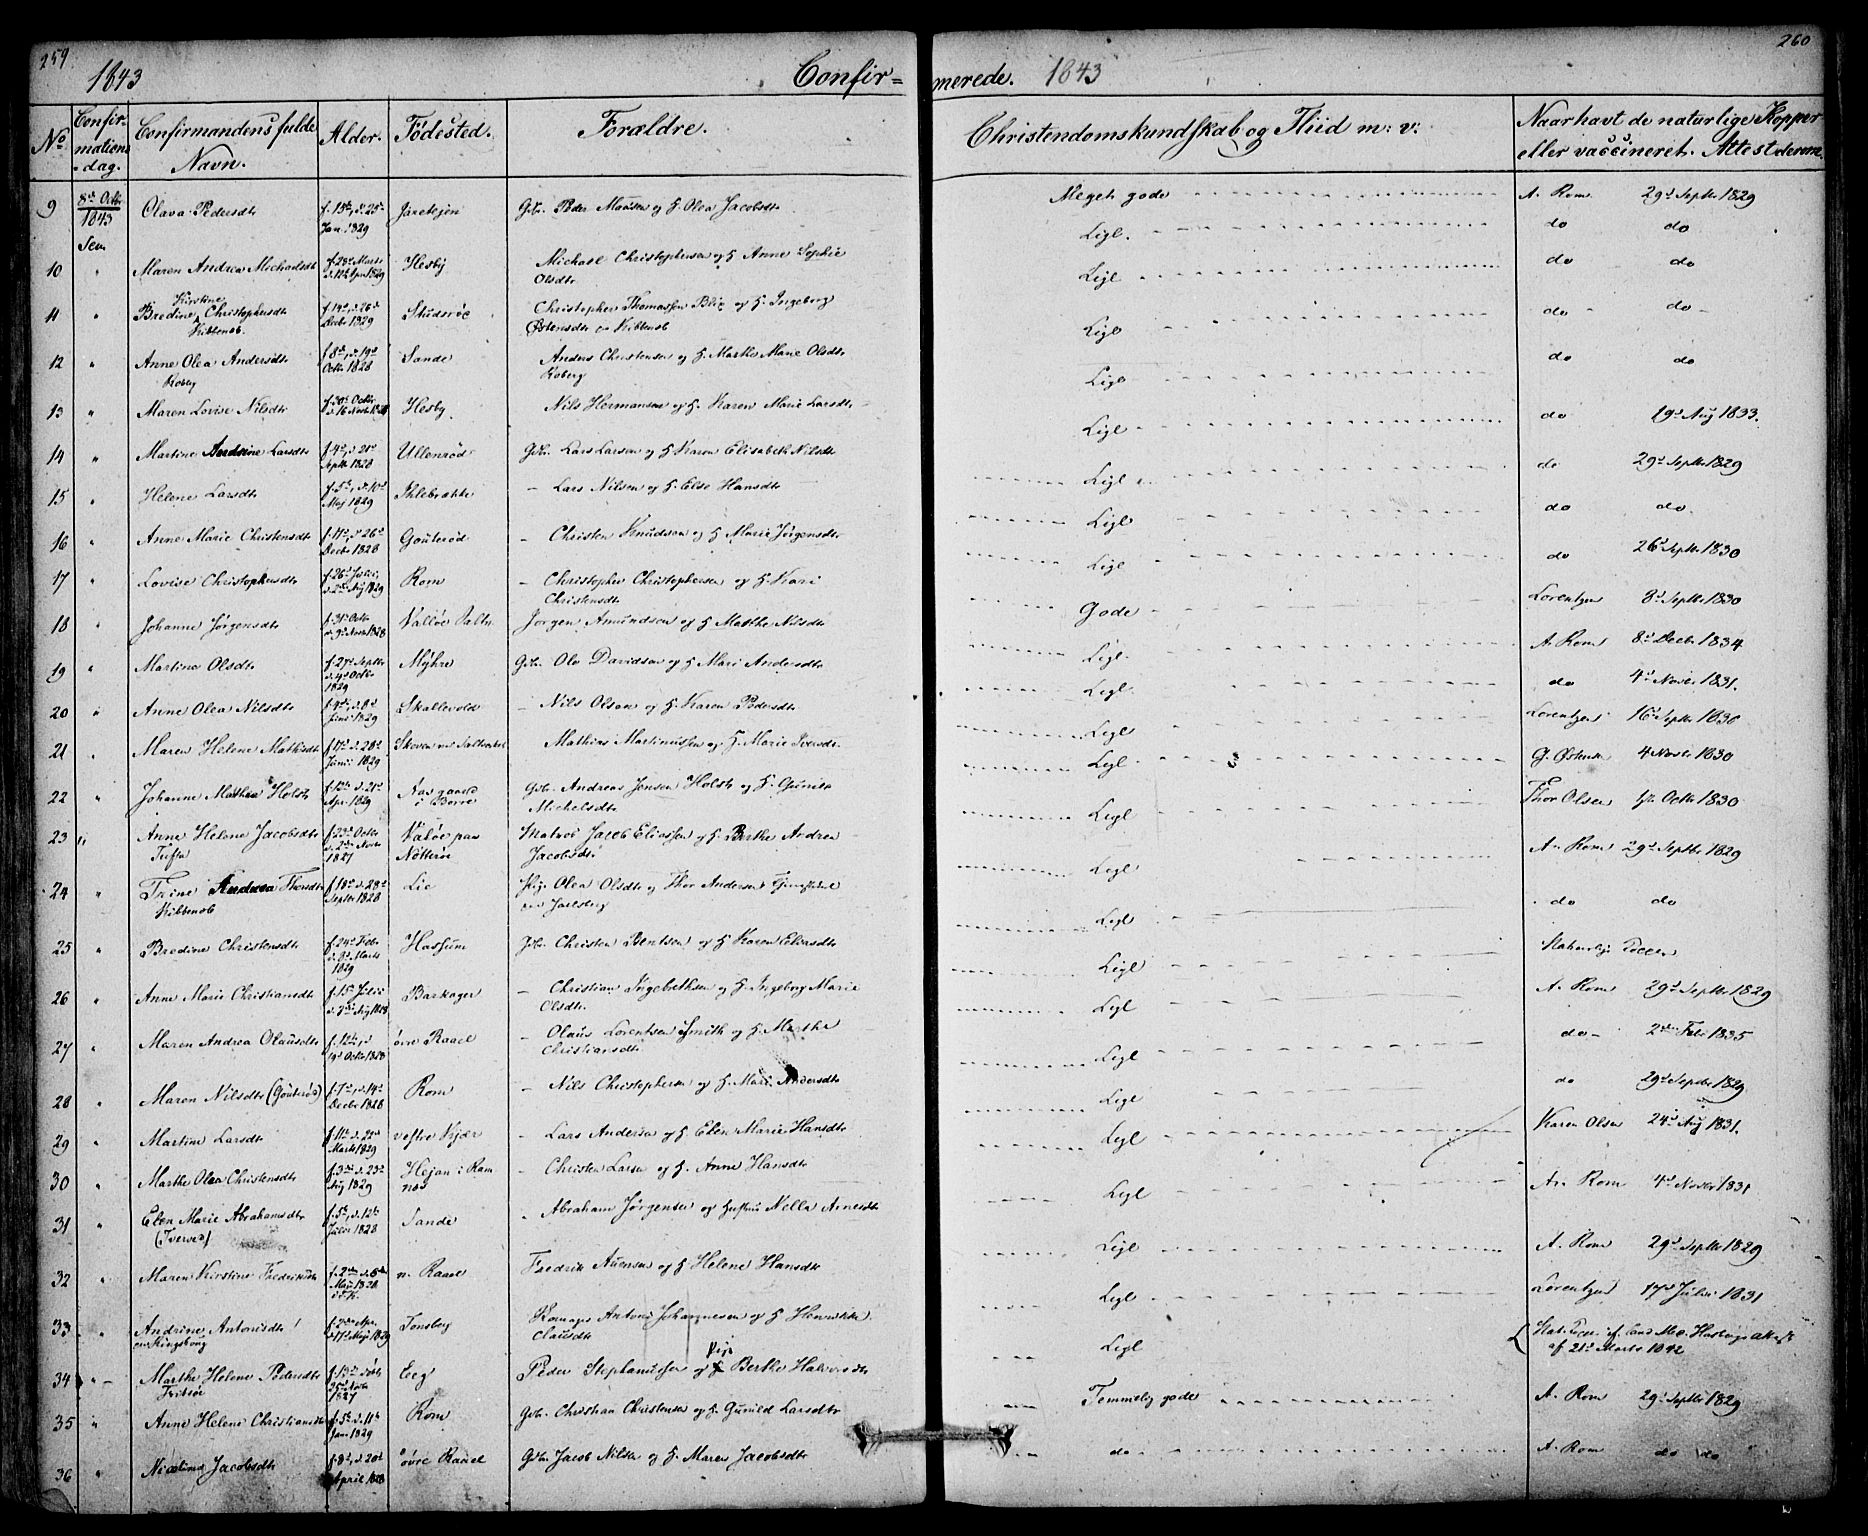 259
1843
Confir=
merede. 1843
260
No
Confir-
mations
-dag.
Confirmandens fulde
Navn.
Alder.
Födested.
Forældre.
Christendomskundskab og Fliid m: v:
Naar havt de naturlige Kopper
eller vaccineret. Attest derom.
9 8de Octbr 1843 Olava Pedersdtr Jan. 1829 Gbr. Peder og H. Olea Jacobsdtr Meget gode A. Rom 29d Septbr 1829
Ligl. do do
10 " Maren Andrea Michaelsdtr Hesby Michael Christophersen og H. Anne Sophie
Olsdtr Ligl do do
11 " Bredine Kirstine Christophersdtr f. 14d, d. 26d Decbr 1829 Studsröe Christopher Thomassen og H. Ingeborg
Kibbenob. Östensdtr Kibbenob Ligl do do
12 " Anne Olea Andersdtr f. 8d, d. 19d Octbr 1828 Sande Anders Christensen og H. Marthe Marie Olsdtr
Koberg Ligl do do
13 " Maren Lovise Nilsdtr f. 30d Octbr d. 16 Novbr Hesby Nils Hermansen og H. Karen Marie Larsdtr Ligl do 19d Aug 1833.
14 " Martine Andrine Larsdtr f. 4d, d. 21d Septbr 1828 Ullenröd Gbr. Lars Larsen og H. Karen Elisabeth Nilsdtr Ligl do 29d Septbr 1829
15 " Helene Larsdtr f. 5d, d. 10d Maj 1829 - Lars Nilsen og H. Else Hansdtr Ligl do do
16 " Anne Marie Christensdtr d. 26d Decbr 1828 Gouteröd - Christen Knudsen og H. Marie Jörgensdtr Ligl do 26d Septbr 1830
17 " Lovise Christophersdtr f. 26d Aug 1829 Rom - Christopher Christophersen og H. Kari
Christensdtr Gode Lorentzen 8d Septbr 1830
18 " Johanne Jörgensdtr f. 31d Octbr d. 9d Novbr 1828 Vallöe Jörgen Amundsen og H. Marthe Nilsdtr Ligl. A. Rom 8d Decbr 1834
19 " Martine Olsdtr f. 27d Septbr d. 4d Octbr 1829 Myhre Gbr. Ole Davidsen og H. Mari Andersdtr Ligl. do 4d Novbr 1831.
20 " Anne Olea Nilsdtr Juni 1829 Skallevold - Nils Olsen og H. Karen Pedersdtr Ligl Lorentzen 16d Septbr 1830
21 " Maren Helene Mathisdtr f. 17d d. 28d Juni 1829 Mathias Martinussen og H. Marie Iversdtr Ligl G. Östensen 4 Novbr 1830
22 " Johanne Mathea Holst f. 12d d. 21d Apr. 1829 Aasgaard
i Borre Gbr. Andreas Jensen Holst og H. Gunild
Michelsdtr Ligl Thor Olsen Octbr 1830
23 " Anne Helene Jacobsdtr f. 23d Octbr 1827 Valöe paa
Nötteröe Matros Jacob Eliassen og H. Berthe Andrea
Jacobsdtr Ligl A. Rom 29d Septbr 1829
24 " Trine Andrea Thorsdtr f. 18d d. 28d Septbr 1828 Lie Pige Olea Olsdtr og Thor Andersen
Kibbenob Jarlsberg Ligl do do
25 " Bredine Christensdtr f. 24d Febr d. 8d Marts 1829 Hassum Gbr. Christen Bentsen og H. Karen Eliasdtr Ligl Naturlige
26 " Anne Marie Christiansdtr f. 15d Julii Barkager - Christian Ingebrethsen og H. Ingeborg Marie
Olsdtr Ligl A. Rom 29d Septbr 1829
27 " Maren Andrea Olausdtr 19d Octbr 1828 övre Raael - Olaus Lorentsen Smith og H. Marthe
Christiansdtr Ligl do 2d Febr 1835
28 " Maren Nilsdtr (Gouteröd) f. 7d, d. 14d Decbr 1828 Rom - Nils Christophersen og H. Mari Andersdtr Ligl do 29d Septbr 1829
29 " Martine Larsdtr f. 11d d. 22d Marts 1829 vestre Kjær - Lars Andersen og H. Elen Marie Hansdtr Ligl Karen Olsen 24d Aug 1831.
30 " Marthe Olea Christensdtr f. 3d d. 23d Aug 1829 Hejan i Ram
næs - Christen Larsen og H. Anne Hansdtr Ligl A. Rom 4d Novbr 1831
31 " Elen Marie Abrahamsdtr f. 5d, d. 12d Julii 1828 Sande Abraham Jörgensen og Hustrue Nella Arnesdtr
(Tverved) Ligl A. Rom 29d Septbr 1829
32 " Maren Kirstine Fredriksdtr Maj 1828 n. Raael Fredrik og H. Helene Hansdtr Ligl Lorentzen 17d Julii 1831
33 " Andrine Antonisdtr Tonsberg Antoni Johannesen og H. Henrikke
Clausdtr Ligl af 21d Marts 1842
34 " Marthe Helene Pedersdtr 1827 Eeg Peder Stephanussen og Pige Berthe Halvorsdtr
Temmelig gode A. Rom 29d Septbr 1829
35 " Anne Helene Christiansdtr f. 5d d. 11d Jan. 1829 Rom Gbr. Christian Christensen og H. Gunild Larsdtr do
36 " Nicoline Jacobsdtr f. 8d, d. 20d April 1828 övre Raael Gbr. Jacob Nilsen og H. Maren Jacobsdtr A. Rom do do